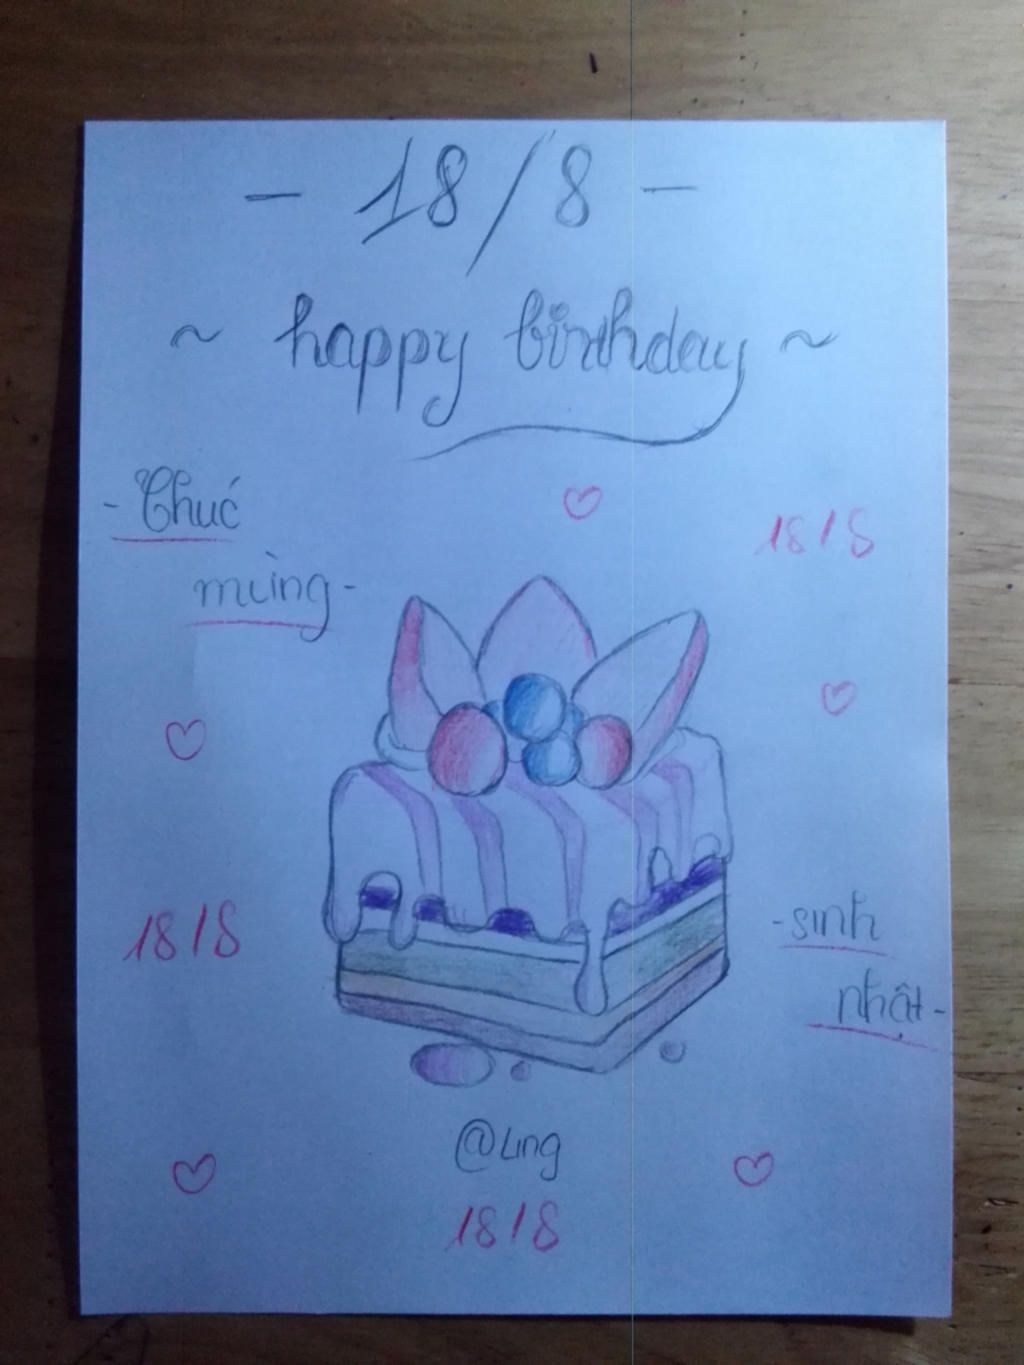 - 18/8 -
~ happy birthday ~
- Chúc
mừng -
18/8
18/8
- sinh
nhật -
@Ling
18/8